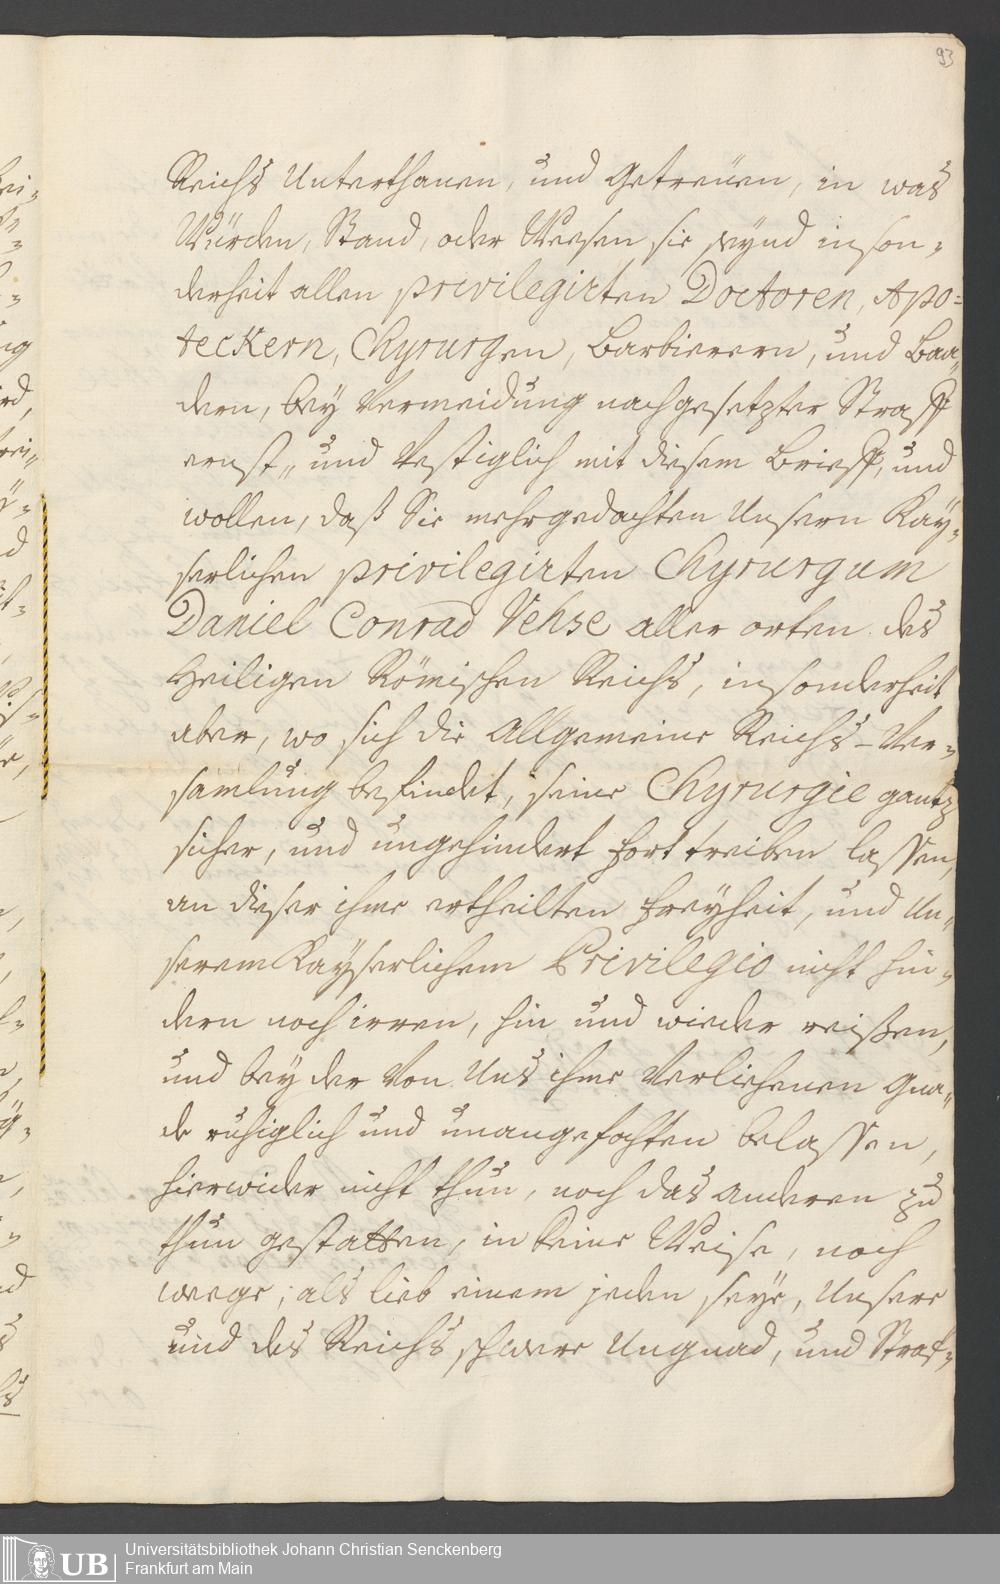 93
Reichs Unterthanen, und Getreüen, in was
Würden, Stand, oder Weesen sie seynd inson-
derheit allen privilegirten Doctoren, Apo=
teckern, Chyrurgen, Barbierern, und Baa„
dern, bey Vermeidung nachgesetzter Straff
ernst„ und Vestiglich mit diesem Brieff, und
wollen, daß Sie mehrgedachten Unsern Kaÿ-
serlichen privilegirten Chyrurgum
Daniel Conrad Vehse aller orten des
Heiligen Römischen Reichs, insonderheit
aber, wo sich die Allgemeine Reichs-Ver-
samlung befindet, seine Chyrurgie gantz
sicher, und ungehindert fort treiben lassen,
an dieser ihme ertheilten Freyheit, und Un„
serem Kaÿserlichem Privilegio nicht hin-
dern noch irren, hin und wieder reißen,
und bey der Von Uns ihme Verliehenen Gna„
de ruhiglich und unangefochten belassen,
hierwider nicht thun, noch das anderen zu
thun gestatten, in keine Weise, noch
weege, als lieb einem jeden seÿe, Unsere
und des Reichs schwere Ungnad, und Straf-
UB
Universitätsbibliothek Johann Christian Senckenberg
Frankfurt am Main